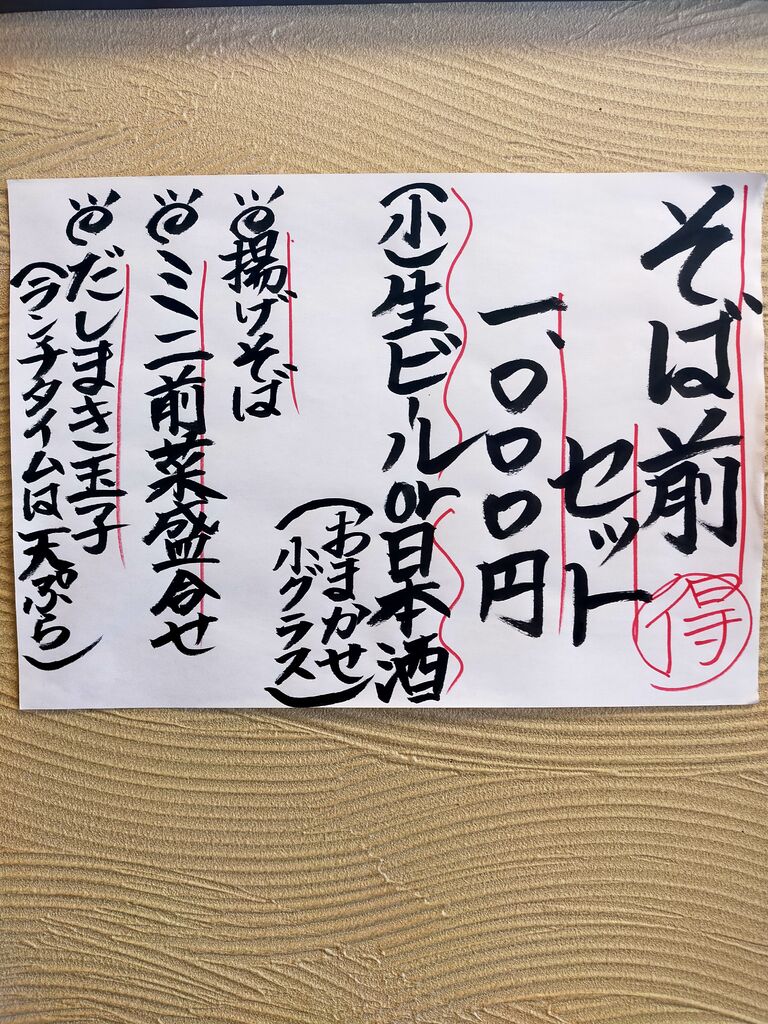 そば前
セット
得
一、〇〇〇円
(小)生ビールor日本酒
(おまかせ
小グラス)
揚げそば
ミニ前菜盛合せ
だしまき玉子
(ランチタイムは天ぷら)